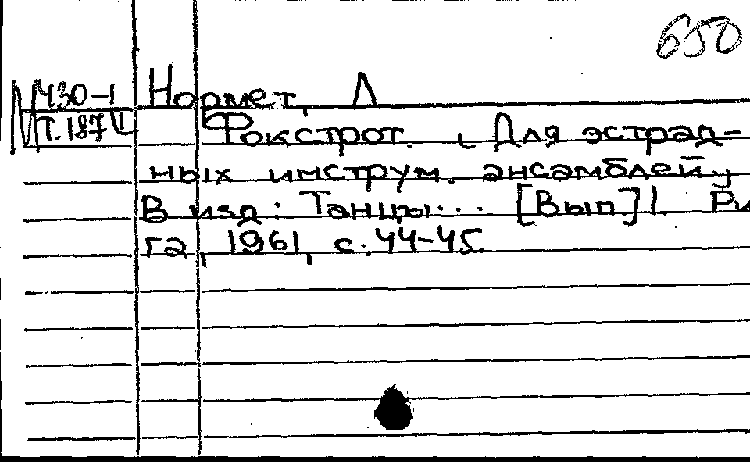 650
М30-1
Т.187
Нормет, Л
Фокстрот. [Для эстрад-
ных инструм. ансамблей]
В изд: Танцы... [Вып] 1. Ри
га, 1961, с. 44-45